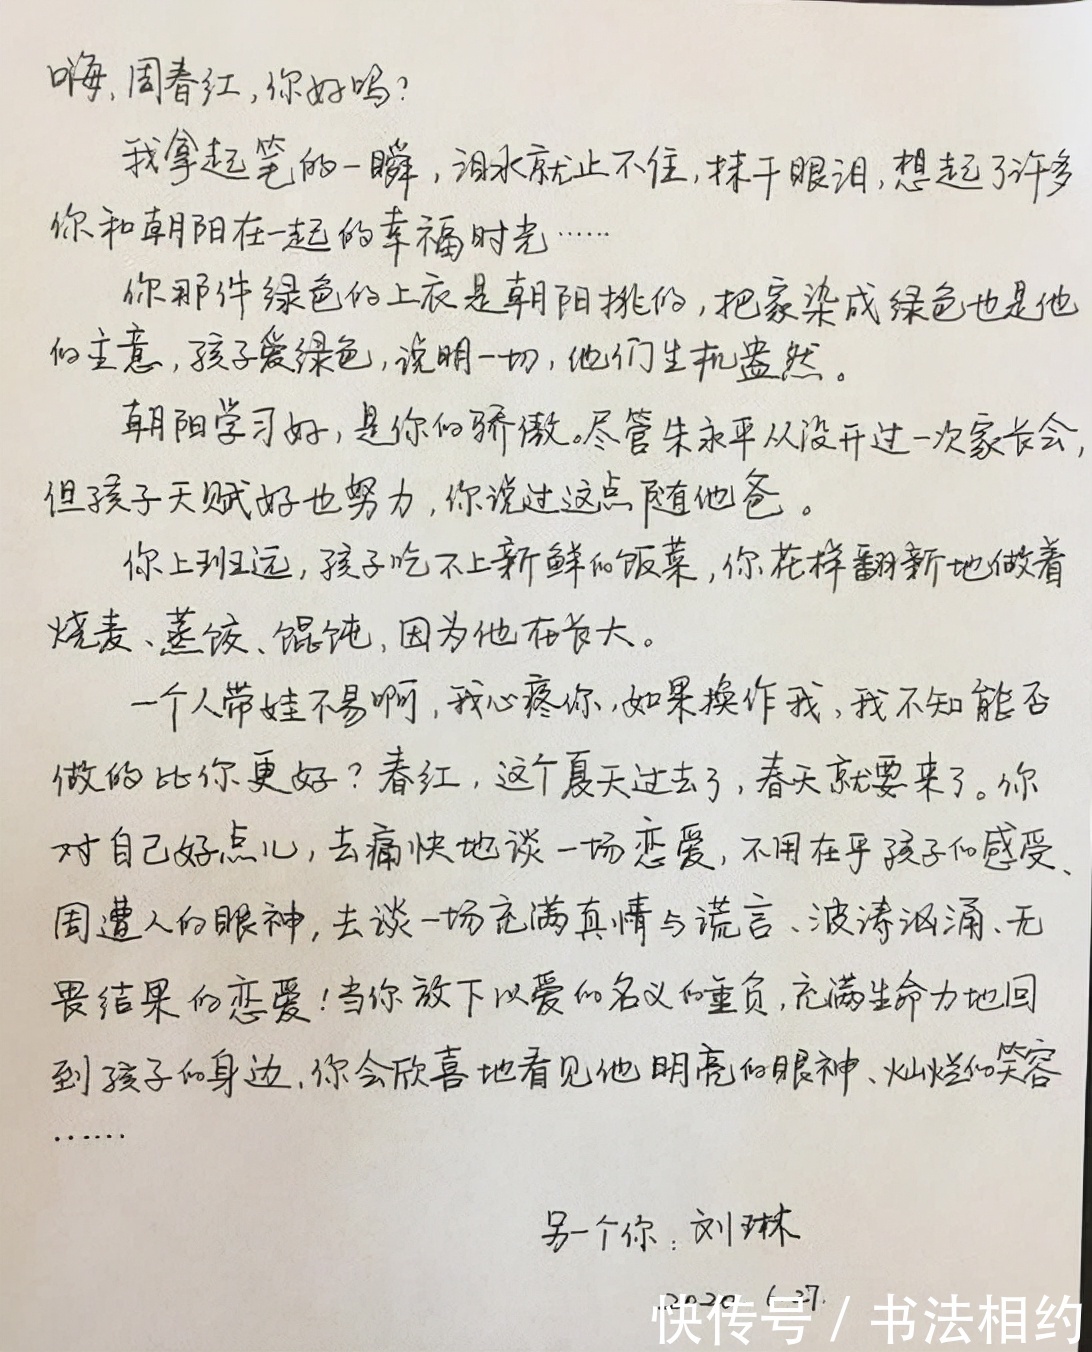 嗨,周春红,你好吗?
我拿起笔的一瞬,泪水就止不住,抹干眼泪,想起了许多
你和朝阳在一起的幸福时光……
你那件绿色的上衣是朝阳挑的,把家染成绿色也是他
的主意,孩子爱绿色,说明一切,他们生机盎然。
朝阳学习好,是你的骄傲。尽管朱永平从没开过一次家长会,
但孩子天赋好也努力,你说过这点随他爸。
你上班远,孩子吃不上新鲜的饭菜,你花样翻新地做着
烧麦、蒸饺、馄饨,因为他在长大。
一个人带娃不易啊,我心疼你,如果换作我,我不知能否
做的比你更好?春红,这个夏天过去了,春天就要来了。你
对自己好点儿,去痛快地谈一场恋爱,不用在乎孩子的感受、
周遭人的眼神,去谈一场充满真情与谎言、波涛汹涌、无
畏结果的恋爱!当你放下以爱的名义的重负,充满生命力地回
到孩子的身边,你会欣喜地看见他明亮的眼神、灿烂的笑容
……
另一个你:刘琳
2020 6.27.
快传号/书法相约